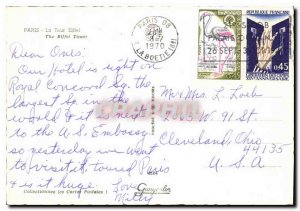 PARIS - La Tour Eiffel
The Eiffel Tower
PARIS 08
1970
LA BOETIE (8E)
REPUBLIQUE FRANCAISE
0,45
Dear Ones.
Our Hotel is right on
Royal Concord Sq. the
largest Sq. in the
world & it is next
to the U.S. Embassy
so yesterday we went
to visit it, toured Paris
& it is huge.
Love
Mitty
Mr & Mrs. L. Loeb
W. 91 St.
Cleveland Ohio
44135
U.S.A
Collectionnez les Cartes Postales !